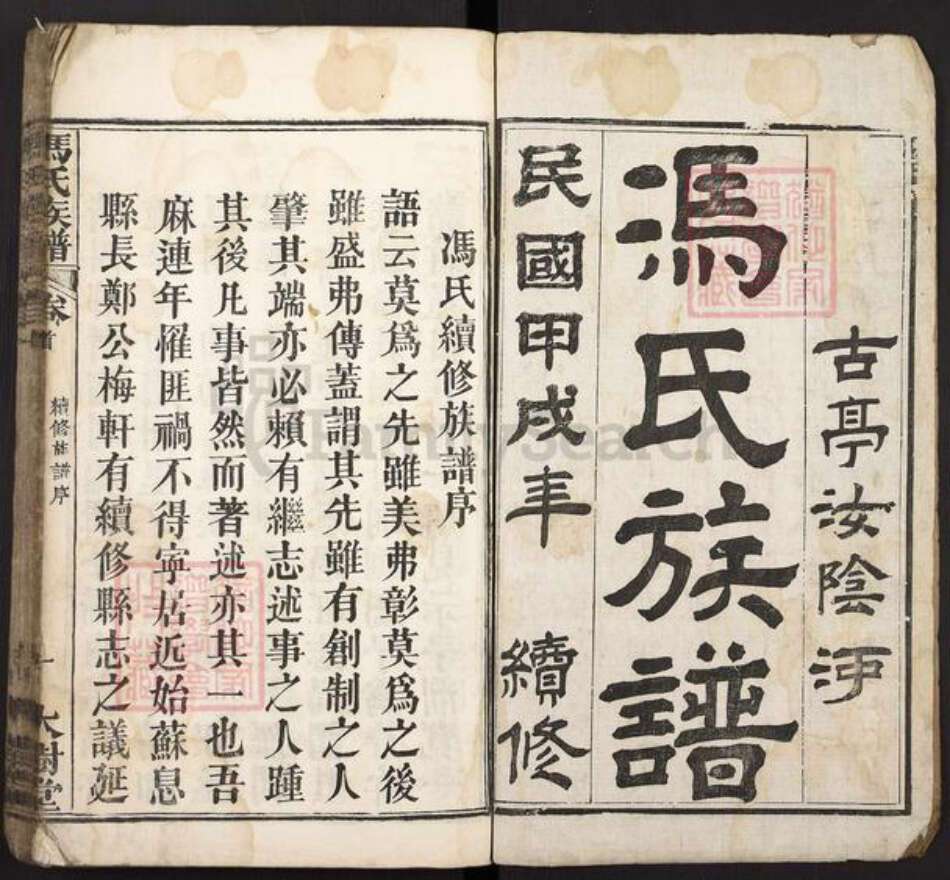 古亭汝陰沔
馮氏族譜
民國甲戌年 續修
馮氏續修族譜序
語云莫爲之先雖美弗彰莫爲之後
雖盛弗傳蓋謂其先雖有創制之人
肇其端亦必賴有繼志述事之人踵
其後凡事皆然而著述亦其一也吾
麻連年罹匪禍不得寧居近始蘇息
縣長鄭公梅軒有續修縣志之議延
馮氏族譜 卷首 續修族譜序 一 大樹堂
FamilySearch